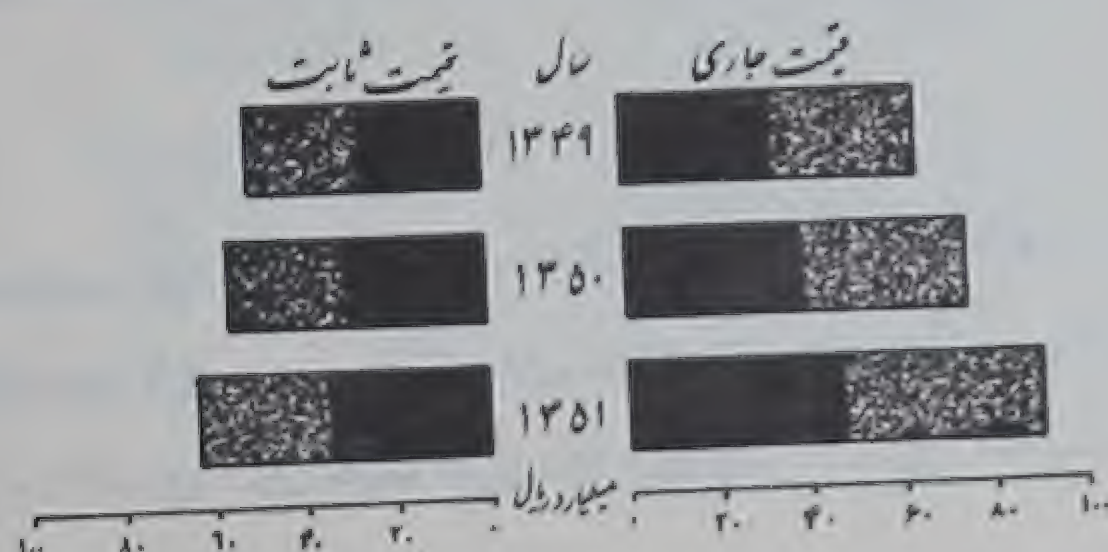 قیمت جاری سال قیمت ثابت
۱۳۴۹
۱۳۵۰
۱۳۵۱
میلیارد ریال
۰ ۲۰ ۴۰ ۶۰ ۸۰ ۱۰۰
۰ ۲۰ ۴۰ ۶۰ ۸۰ ۱۰۰